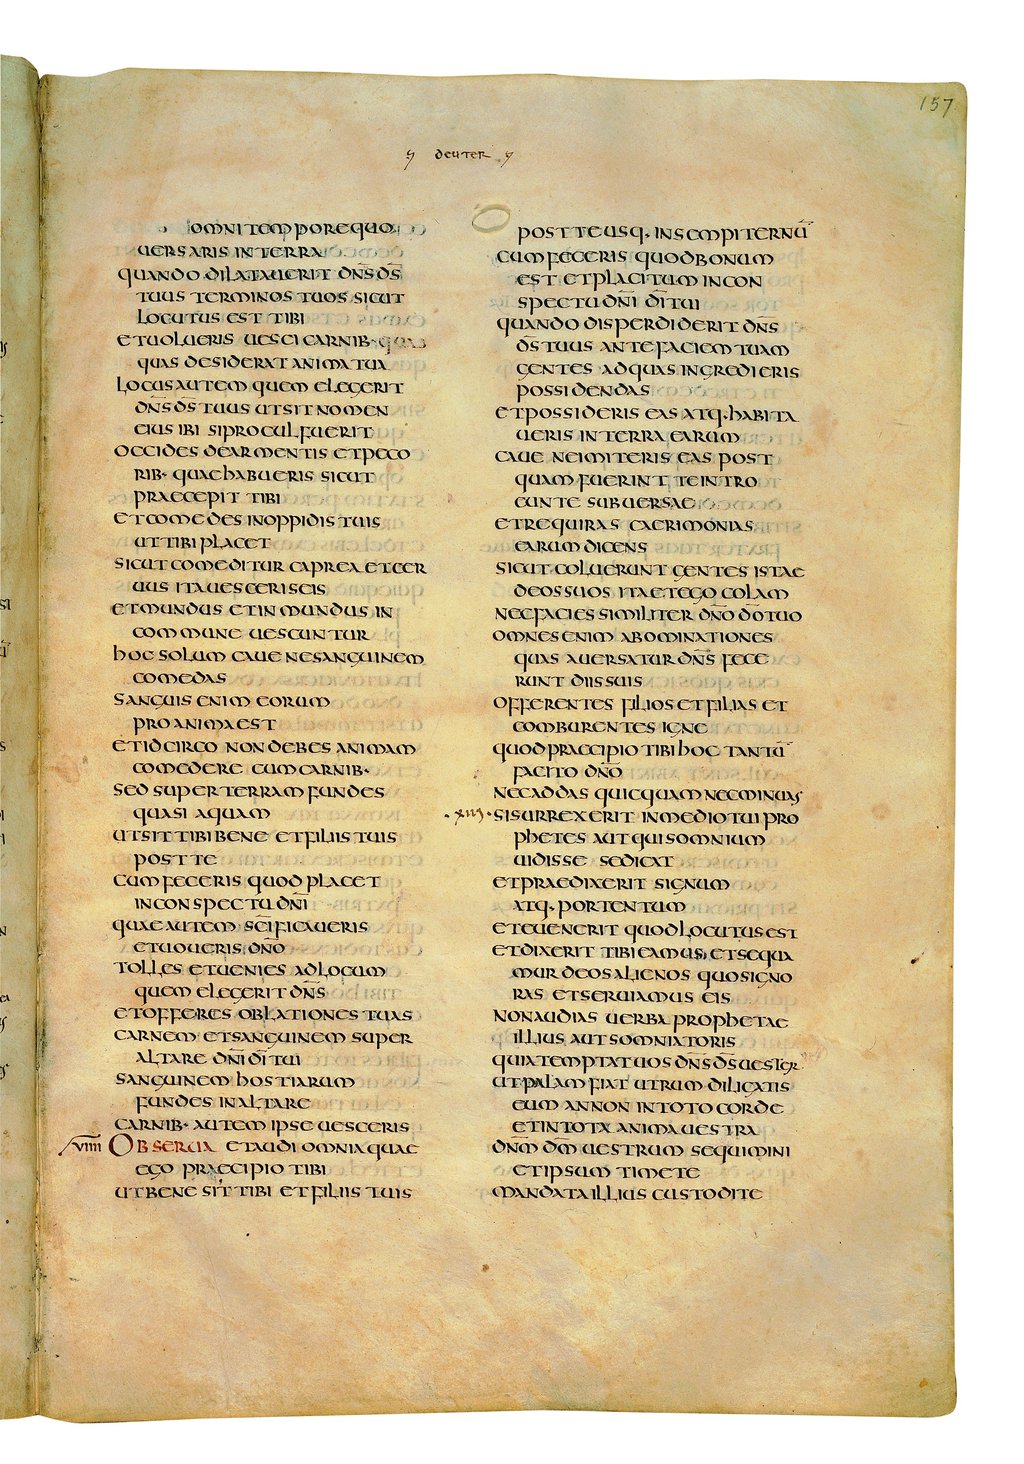 157
deuter
omni tempore quo
uersaris in terra
quando dilatauerit dn̄s ds̄
tuus terminos tuos sicut
locutus est tibi
et uolueris uesci carnib· quas
quas desiderat anima tua
locus autem quem elegerit
dn̄s ds̄ tuus ut sit nomen
eius ibi si procul fuerit
occides de armentis et peco
rib· quae habueris sicut
praecepit tibi
et comedes in oppidis tuis
ut tibi placet
sicut comeditur caprea et cer
uus ita uesceris eis
et mundus et inmundus in
commune uescuntur
hoc solum caue ne sanguinem
comedas
sanguis enim eorum
pro anima est
et idcirco non debes animam
comedere cum carnib·
sed super terram fundes
quasi aquam
ut sit tibi bene et filiis tuis
post te
cum feceris quod placet
in conspectu dn̄i
quae autem sc̄ificaueris
et uoueris dn̄o
tolles et uenies ad locum
quem elegerit dn̄s
et offeres oblationes tuas
carnem et sanguinem super
altare dn̄i dī tui
sanguinem hostiarum
fundes in altare
carnib· autem ipse uesceris
uiiii Obserua et audi omnia quae
ego praecipio tibi
ut bene sit tibi et filiis tuis
post te usq· in sempiternū
cum feceris quod bonum
est et placitum in con
spectu dn̄i dī tui
quando disperdiderit dn̄s
ds̄ tuus ante faciem tuam
gentes ad quas ingredieris
possidendas
et possideris eas atq· habita
ueris in terra earum
caue ne imiteris eas post
quam fuerint te intro
eunte subuersae
et requiras caerimonias
earum dicens
sicut coluerunt gentes istae
deos suos ita et ego colam
nec facies similiter dn̄o dō tuo
omnes enim abominationes
quas auersatur dn̄s fece
runt diis suis
offerentes filios et filias et
comburentes igne
quod praecipio tibi hoc tantū
facito dn̄o
nec addas quicquam nec minuas
·xiii· si surrexerit in medio tui pro
phetes aut qui somnium
uidisse se dicat
et praedixerit signum
atq· portentum
et euenerit quod locutus est
et dixerit tibi eamus et sequa
mur deos alienos quos igno
ras et seruiamus eis
non audias uerba prophetae
illius aut somniatoris
quia temptat uos dn̄s ds̄ uester
ut palam fiat utrum diligatis
eum an non in toto corde
et in tota anima uestra
dn̄m dm̄ uestrum sequimini
et ipsum timete
mandata illius custodite